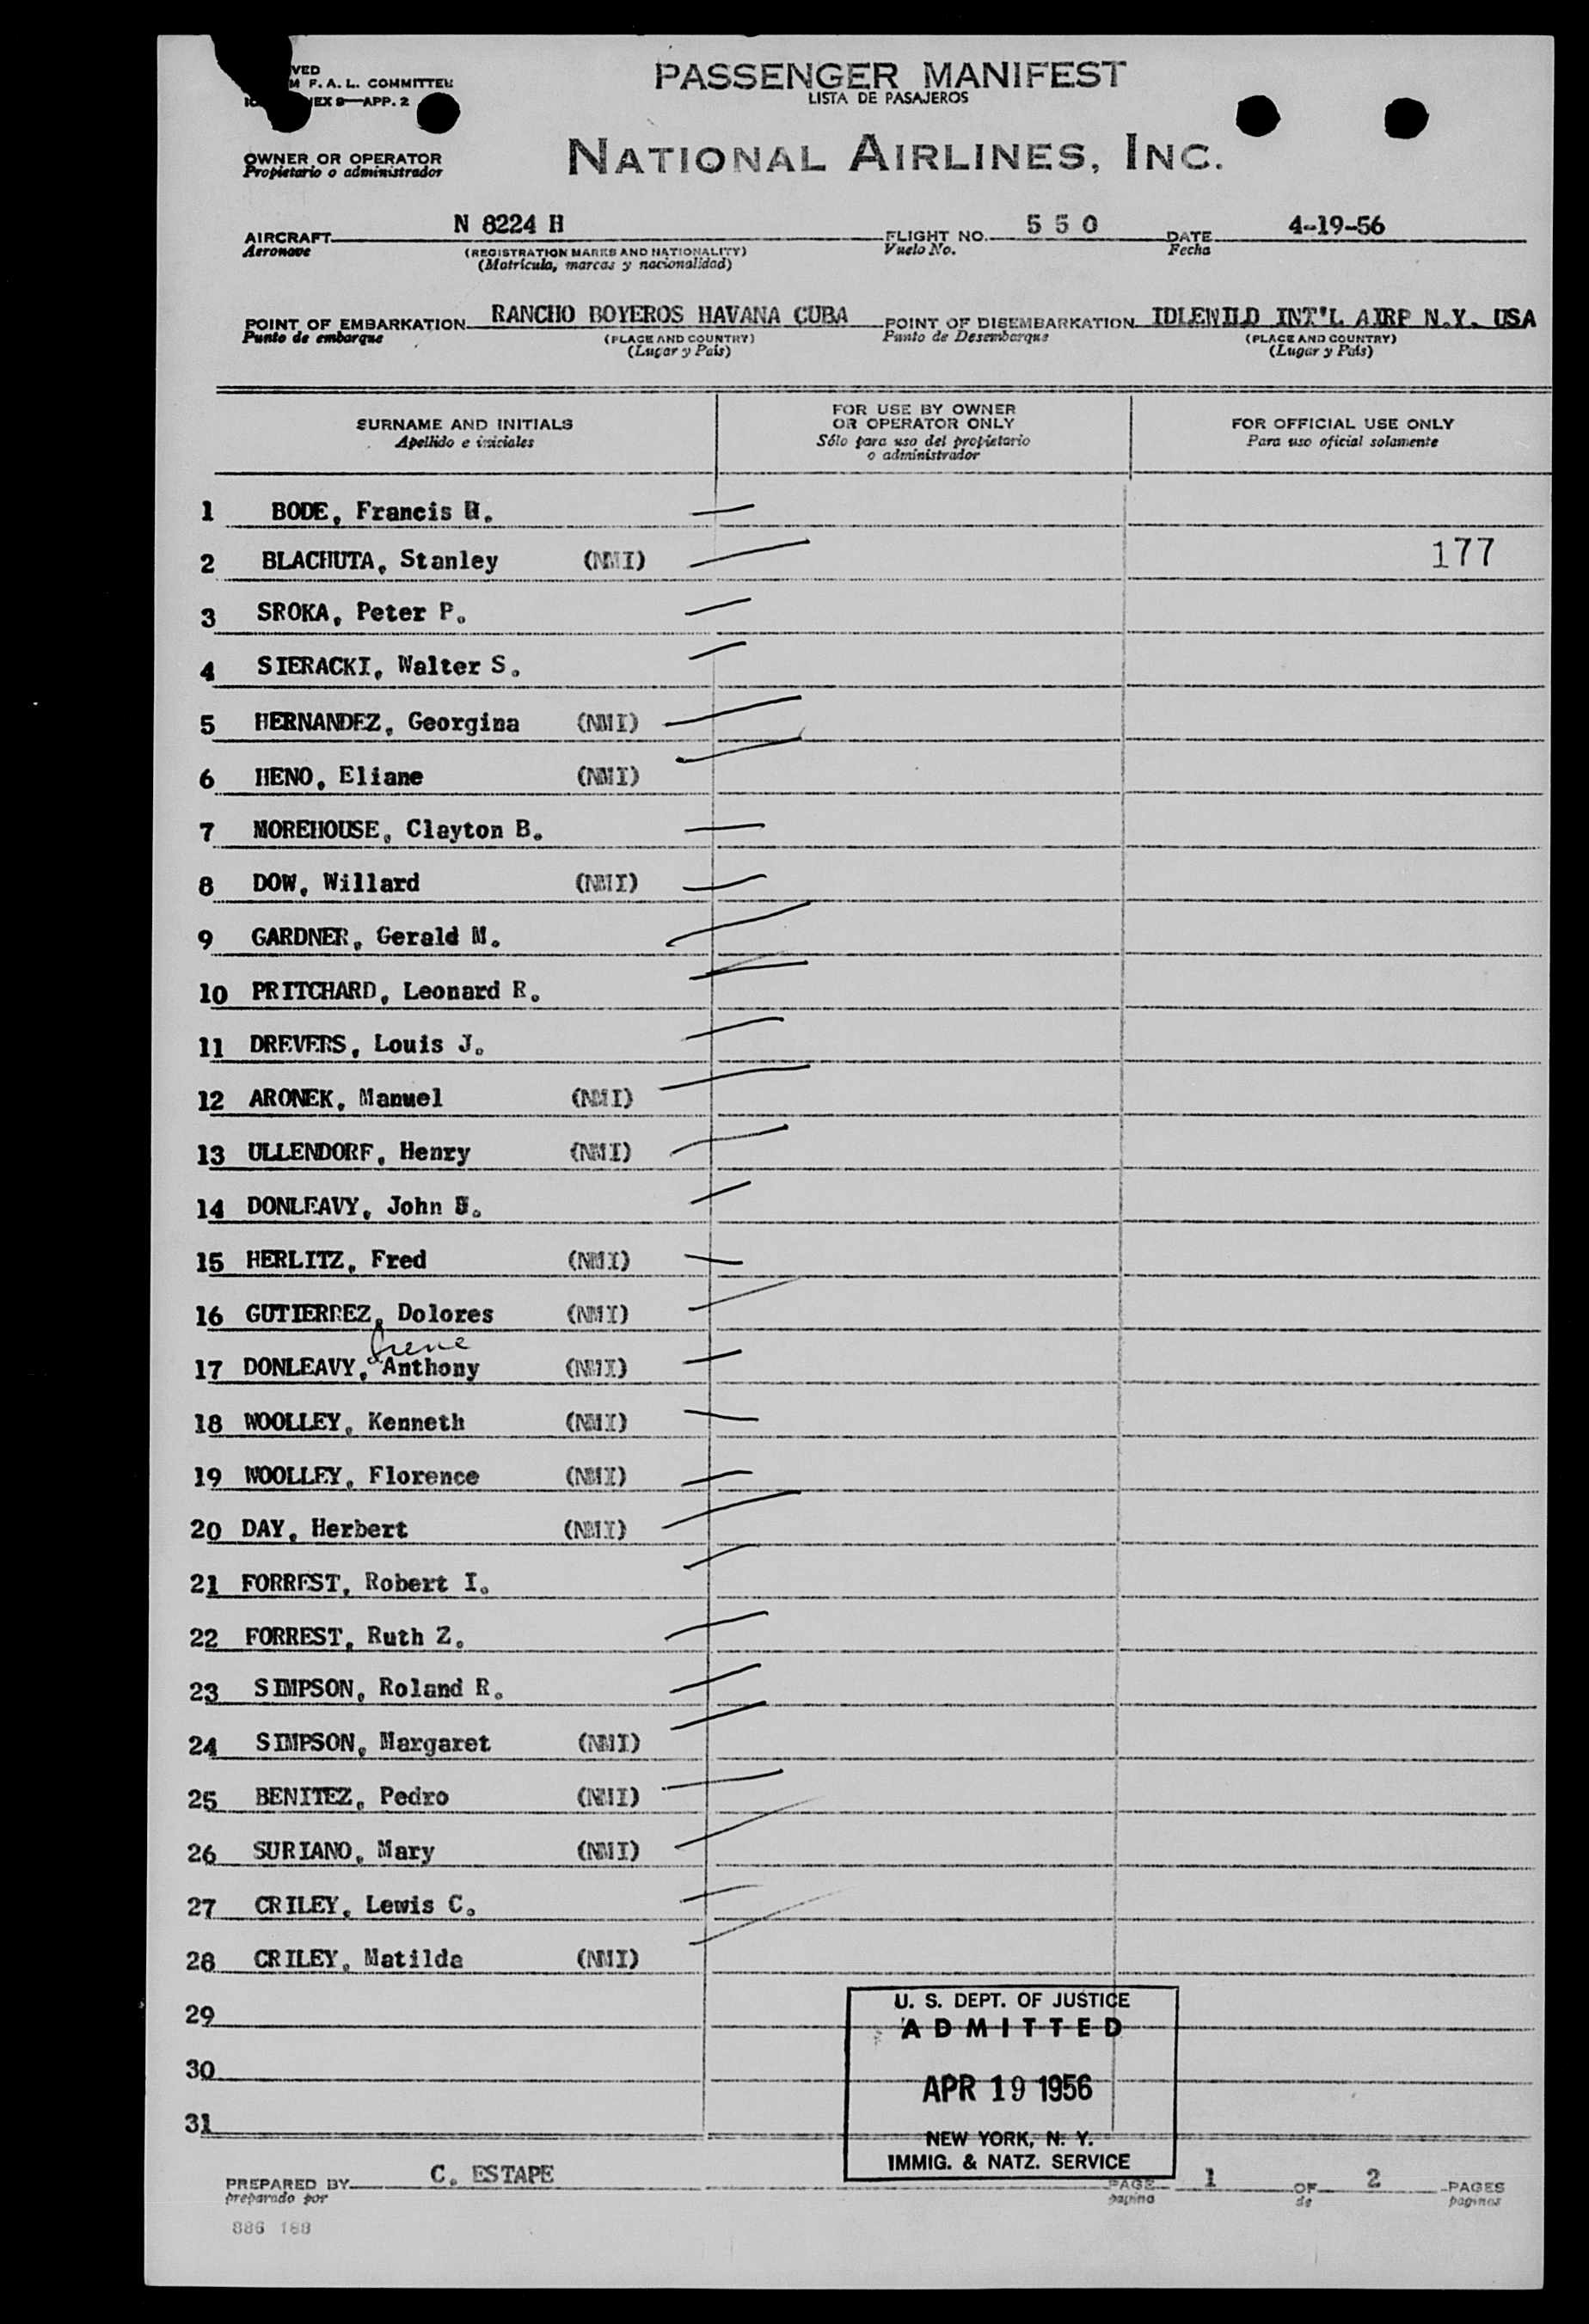 VED
M F. A. L. COMMITTEE
EX 9—APP. 2
PASSENGER MANIFEST
LISTA DE PASAJEROS
OWNER OR OPERATOR
Propietario o administrador
NATIONAL AIRLINES, INC.
AIRCRAFT N 8224 H FLIGHT NO. 5 5 0 DATE 4-19-56
Aeronave (REGISTRATION MARKS AND NATIONALITY) Vuelo No. Fecha
(Matrícula, marcas y nacionalidad)
POINT OF EMBARKATION RANCHO BOYEROS HAVANA CUBA POINT OF DISEMBARKATION IDLEWILD INT'L AIRP N.Y. USA
Punto de embarque (PLACE AND COUNTRY) Punto de Desembarque (PLACE AND COUNTRY)
(Lugar y País) (Lugar y País)
SURNAME AND INITIALS
Apellido e iniciales
FOR USE BY OWNER
OR OPERATOR ONLY
Sólo para uso del propietario
o administrador
FOR OFFICIAL USE ONLY
Para uso oficial solamente
1 BODE, Francis H.
2 BLACHUTA, Stanley (NMI) 177
3 SROKA, Peter P.
4 SIERACKI, Walter S.
5 HERNANDEZ, Georgina (NMI)
6 HENO, Eliane (NMI)
7 MOREHOUSE, Clayton B.
8 DOW, Willard (NMI)
9 GARDNER, Gerald M.
10 PRITCHARD, Leonard R.
11 DREVERS, Louis J.
12 ARONEK, Manuel (NMI)
13 ULLENDORF, Henry (NMI)
14 DONLEAVY, John S.
15 HERLITZ, Fred (NMI)
16 GUTIERREZ, Dolores (NMI)
Irene
17 DONLEAVY, Anthony (NMI)
18 WOOLLEY, Kenneth (NMI)
19 WOOLLEY, Florence (NMI)
20 DAY, Herbert (NMI)
21 FORREST, Robert I.
22 FORREST, Ruth Z.
23 SIMPSON, Roland R.
24 SIMPSON, Margaret (NMI)
25 BENITEZ, Pedro (NMI)
26 SURIANO, Mary (NMI)
27 CRILEY, Lewis C.
28 CRILEY, Matilda (NMI)
29
30
31
U. S. DEPT. OF JUSTICE
ADMITTED
APR 19 1956
NEW YORK, N. Y.
IMMIG. & NATZ. SERVICE
PREPARED BY C. ESTAPE PAGE 1 OF 2 PAGES
preparado por pagina de paginas
886 188